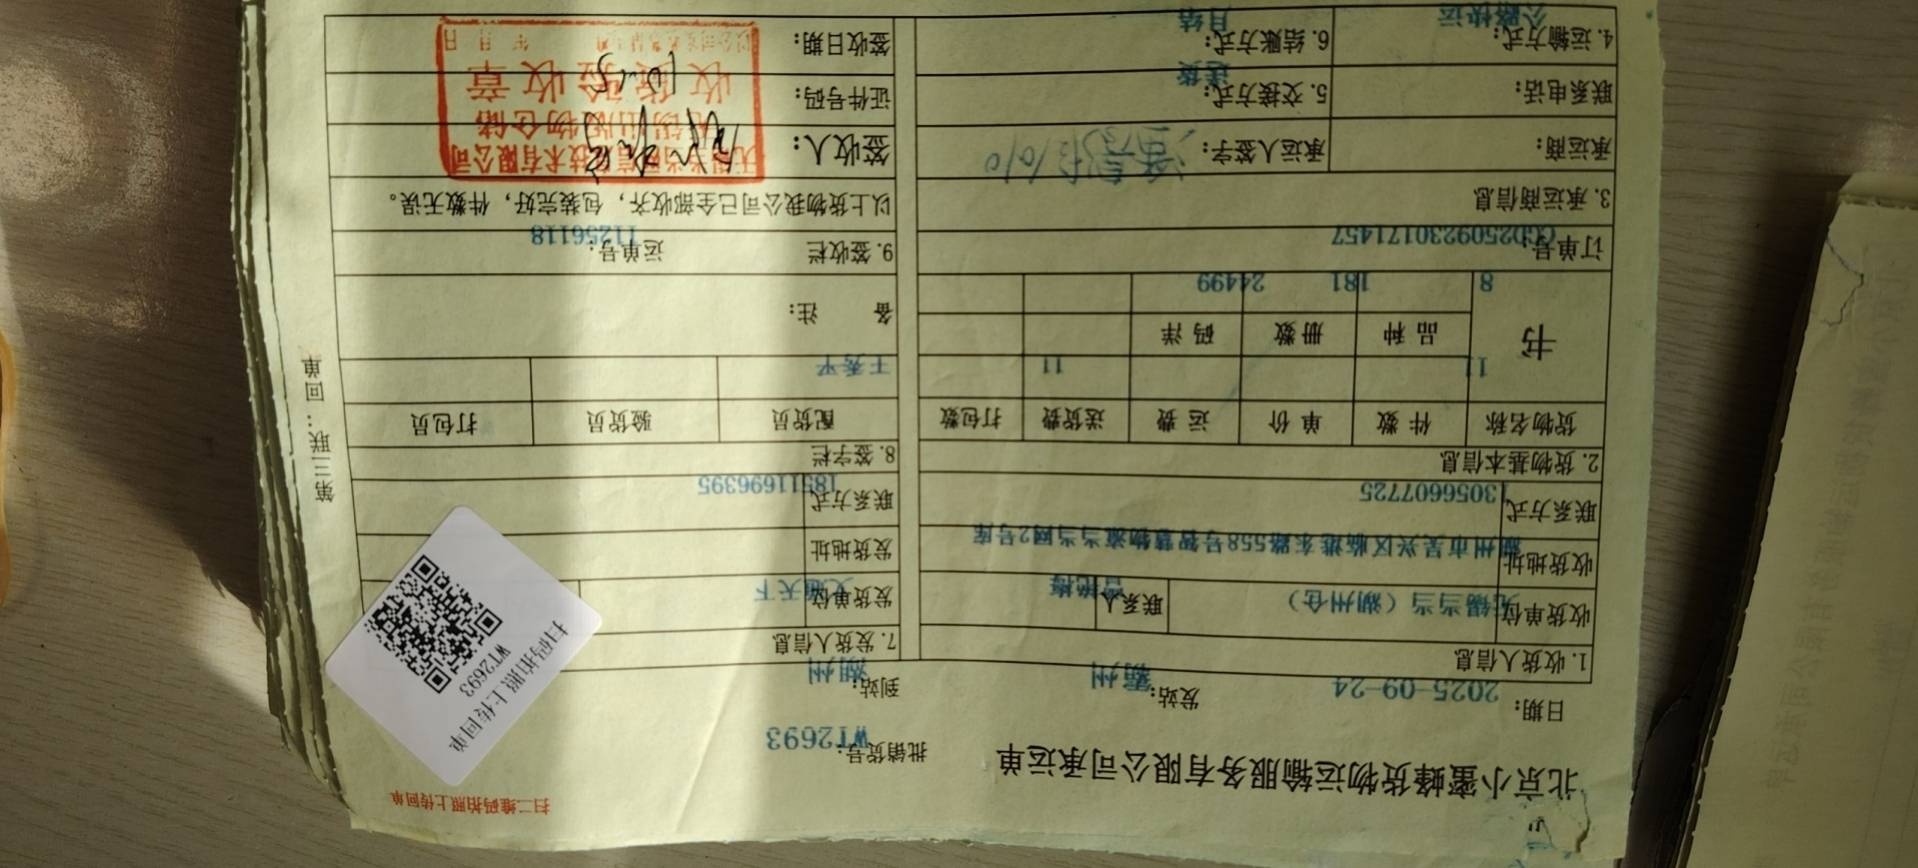 扫二维码拍照上传回单
北京小蜜蜂货物运输服务有限公司承运单
批销货号: WT2693
日期: 2025-09-24 发站: 霸州 到站: 湖州
扫码拍照上传回单
WT2693
1. 收货人信息
收货单位 无锡当当(湖州仓) 联系人
收货地址 湖州市吴兴区临港东路558号智慧物流当当网2号库
联系方式 13056607725
2. 货物基本信息
货物名称 件数 单价 运费 送货费 打包数
书 11 11
品种 册数 码洋
8 181 24499
订单号: GD2509230171457
3. 承运商信息
承运商: 承运人签字:
联系电话: 5. 交接方式: 送货
4. 运输方式: 公路快运 6. 结账方式: 月结
7. 发货人信息
发货单位 文通天下
发货地址
联系方式 18511696395
8. 签字栏
配货员 验货员 打包员
王秀平
备 注:
9. 签收栏 运单号: 11256118
以上货物我公司已全部收齐,包装完好,件数无误。
签收人:
证件号码:
签收日期:
无锡当当网信息技术有限公司
无锡出版物仓储
收货验收章
年 月 日
第三联:回单